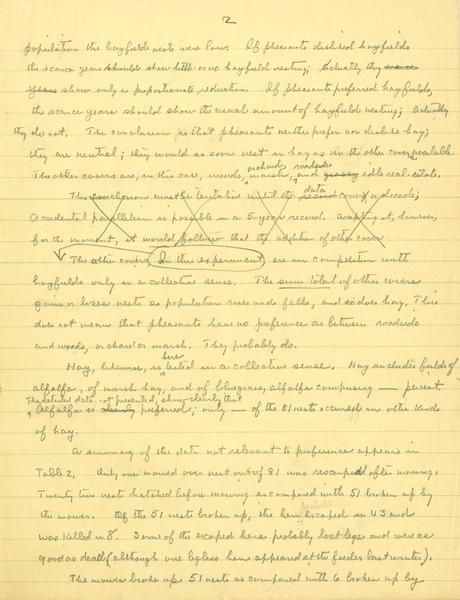 2
population the hayfield nests were low. If pheasants disliked hayfields
the scarce years should show little or no hayfield nesting; actually they scarce
years show only a proportionate reduction. If pheasants preferred hayfields,
the scarce years should show the usual amount of hayfield nesting; actually
they do not. The conclusion is that pheasants neither prefer nor dislike hay;
they are neutral; they would as soon nest in hay as in the other cover available.
orchard, roadsides
The other covers are, in this case, woods, marsh, and grassy idle real-estate.
data
The conclusion must be tentative until the record covers a decade;
Accidental parallelism is possible in a 5-year record. Accepting it, however,
for the moment, it would follow that the addition of other cover
The other covers in this experiment, are in competition with
hayfields only in a collective sense. The sum total of other covers
gains or loses nests as population rises and falls, and so does hay. This
does not mean that pheasants have no preference as between roadside
and woods, orchard or marsh. They probably do.
here
Hay, likewise, is tested in a collective sense. Hay includes fields of
alfalfa, of marsh hay, and of bluegrass, alfalfa comprising — percent
The detailed data, not presented, show clearly that
Alfalfa is clearly preferred; only — of the 81 nests occurred in other kinds
of hay.
A summary of the data not relevant to preference appears in
Table 2. Only one mowed over nest out of 81 was rescued after mowing.
Twenty two nests hatched before mowing as compared with 51 broken up by
the mower. Of the 51 nests broken up, the hen escaped in 43 and
was killed in 8. Some of the escaped hens probably lost legs and were as
good as dead (although one legless hen appeared at the feeder last winter).
The mower broke up 51 nests as compared with 6 broken up by